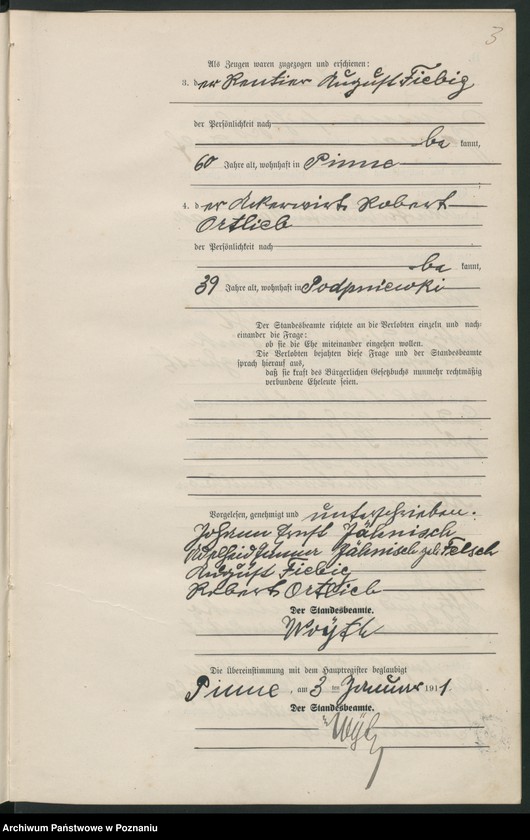 3
Als Zeugen waren zugezogen und erschienen:
3. der Rentier August Fiebig
der Persönlichkeit nach
be kannt,
60 Jahre alt, wohnhaft in Pinne
4. der Ackerwirt Robert
Ortlieb
der Persönlichkeit nach
be kannt,
39 Jahre alt, wohnhaft in Podpniewki
Der Standesbeamte richtete an die Verlobten einzeln und nach-
einander die Frage:
ob sie die Ehe miteinander eingehen wollen.
Die Verlobten bejahten diese Frage und der Standesbeamte
sprach hierauf aus,
daß sie kraft des Bürgerlichen Gesetzbuchs nunmehr rechtmäßig
verbundene Eheleute seien.
Vorgelesen, genehmigt und unterschrieben.
Johann Ernst Jähnisch
Jähnisch geb. Felsch
August Fiebig
Robert Ortlieb
Der Standesbeamte.
Woyth
Die Übereinstimmung mit dem Hauptregister beglaubigt
Pinne, am 3 ten Januar 1911.
Der Standesbeamte.
Archiwum Państwowe w Poznaniu